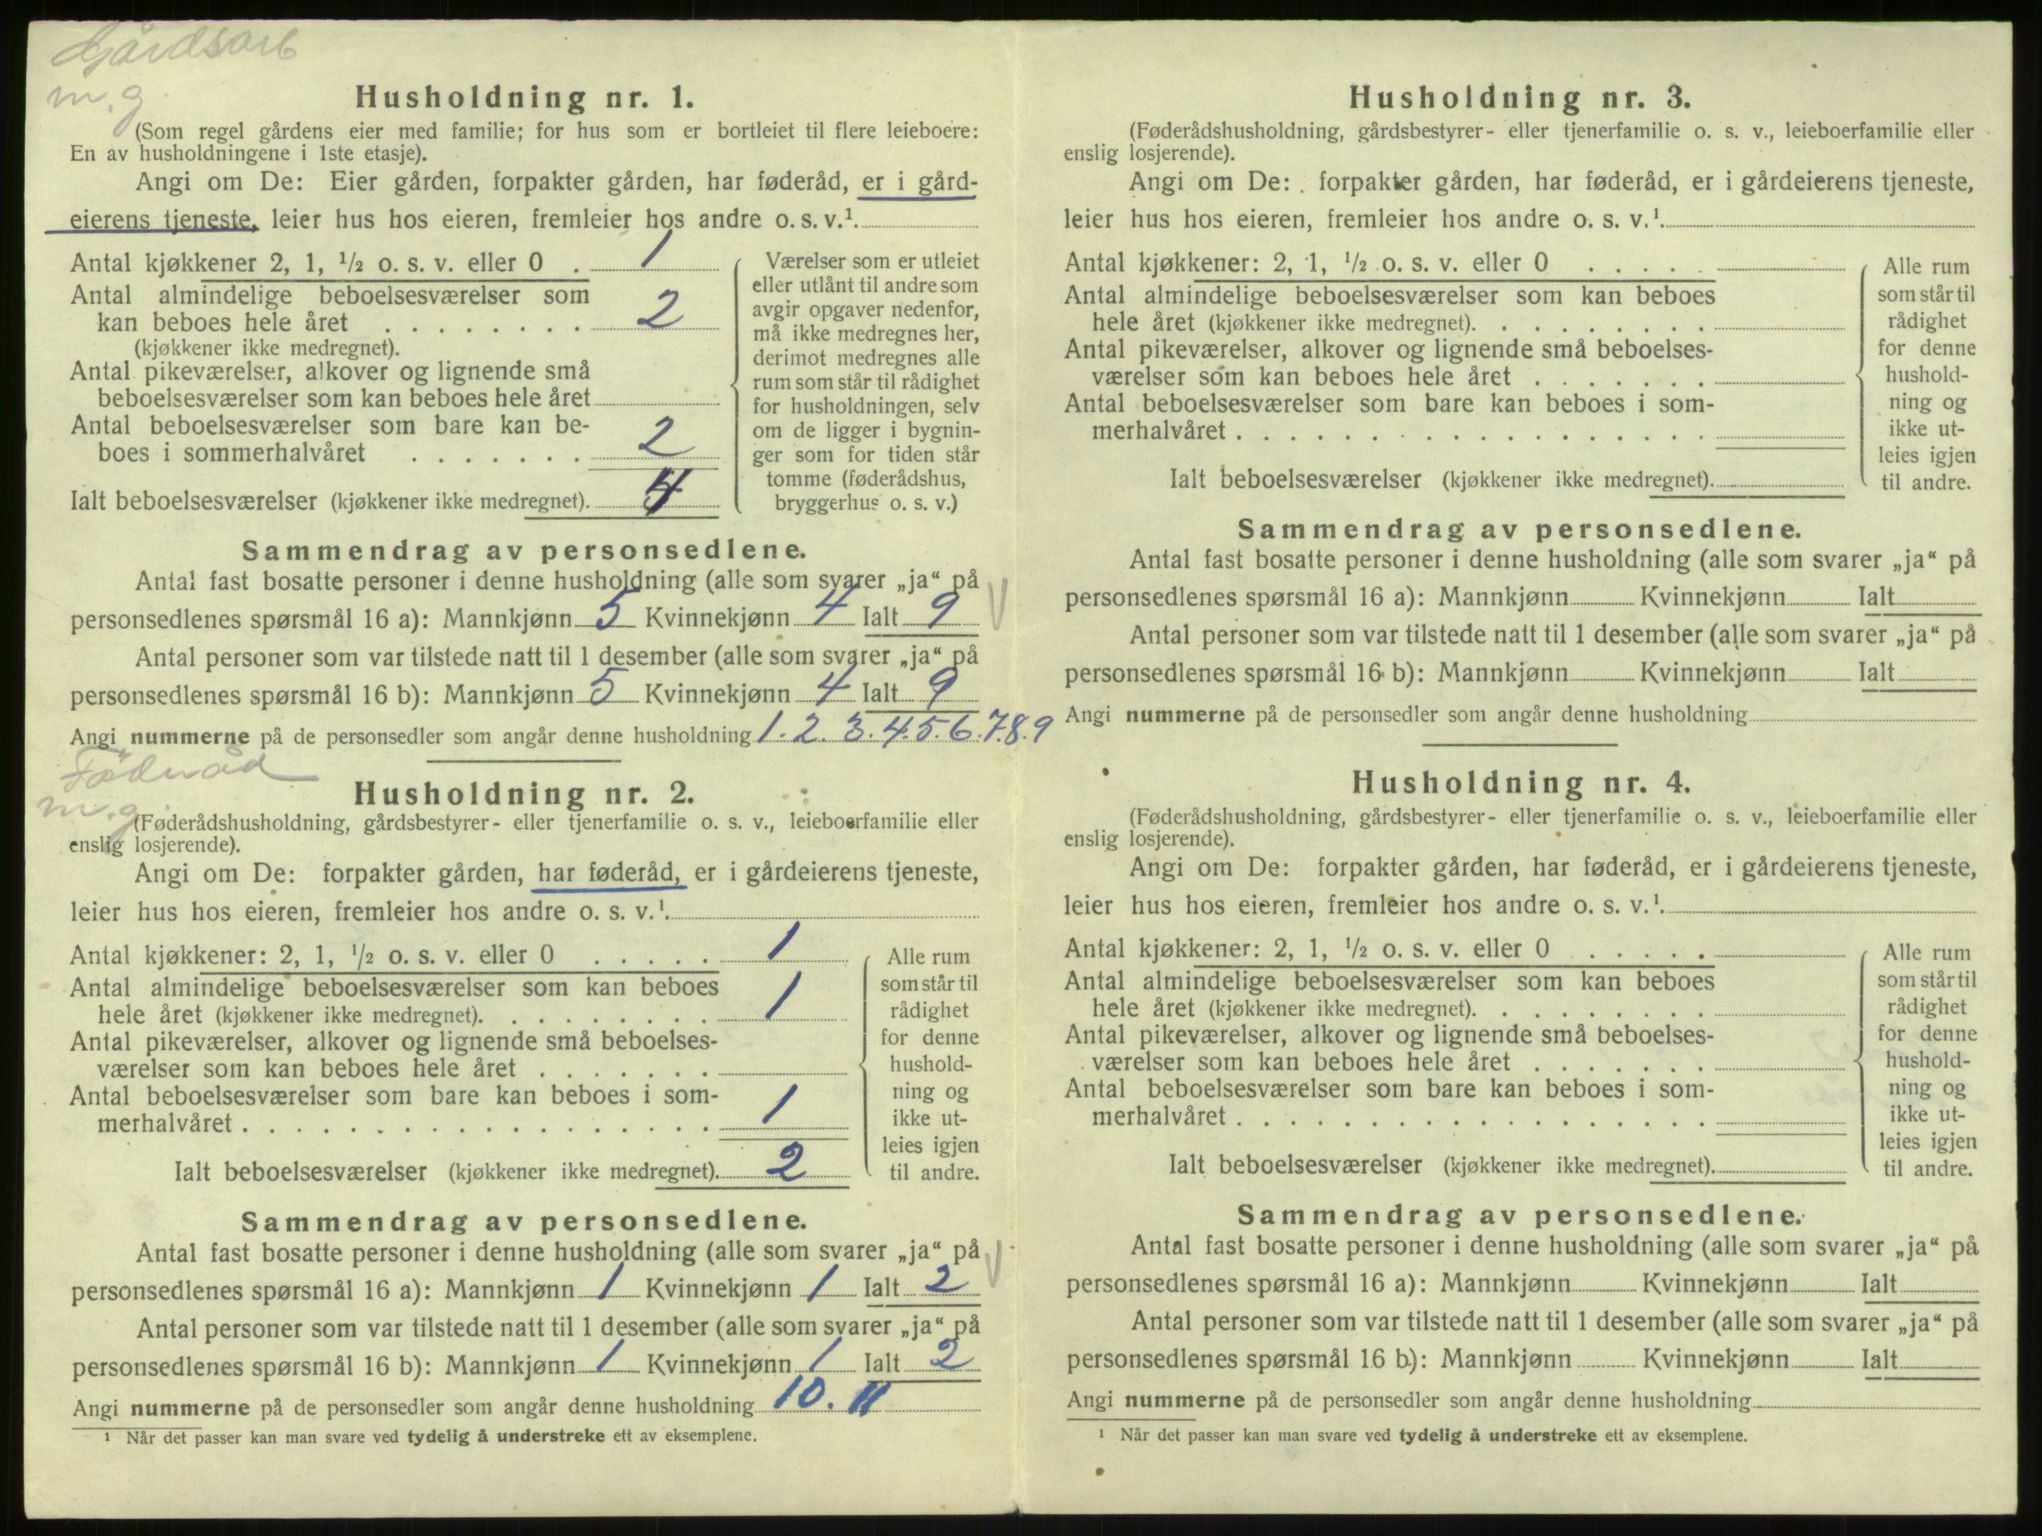 Gårdsarb
m.g.
Husholdning nr. 1.
(Som regel gårdens eier med familie; for hus som er bortleiet til flere leieboere:
En av husholdningene i 1ste etasje).
Angi om De: Eier gården, forpakter gården, har føderåd, er i gård-
eierens tjeneste, leier hus hos eieren, fremleier hos andre o. s. v.¹
Antal kjøkkener 2, 1, ½ o. s. v. eller 0 . 1
Antal almindelige beboelsesværelser som
kan beboes hele året . . . . . . . . 2
(kjøkkener ikke medregnet).
Antal pikeværelser, alkover og lignende små
beboelsesværelser som kan beboes hele året
Antal beboelsesværelser som bare kan be-
boes i sommerhalvåret . . . . . . . 2
Ialt beboelsesværelser (kjøkkener ikke medregnet). 4
Værelser som er utleiet
eller utlånt til andre som
avgir opgaver nedenfor,
må ikke medregnes her,
derimot medregnes alle
rum som står til rådighet
for husholdningen, selv
om de ligger i bygnin-
ger som for tiden står
tomme (føderådshus,
bryggerhus o. s. v.)
Sammendrag av personsedlene.
Antal fast bosatte personer i denne husholdning (alle som svarer „ja“ på
personsedlenes spørsmål 16 a): Mannkjønn 5 Kvinnekjønn 4 Ialt 9
Antal personer som var tilstede natt til 1 desember (alle som svarer „ja“ på
personsedlenes spørsmål 16 b): Mannkjønn 5 Kvinnekjønn 4 Ialt 9
Angi nummerne på de personsedler som angår denne husholdning 1.2.3.4.5.6.7.8.9
Föderåd
m.g.
Husholdning nr. 2.
(Føderådshusholdning, gårdsbestyrer- eller tjenerfamilie o. s. v., leieboerfamilie eller
enslig losjerende).
Angi om De: forpakter gården, har føderåd, er i gårdeierens tjeneste,
leier hus hos eieren, fremleier hos andre o. s. v.¹
Antal kjøkkener: 2, 1, ½ o. s. v. eller 0 . . . . . 1
Antal almindelige beboelsesværelser som kan beboes
hele året (kjøkkener ikke medregnet). . . . . . . . . 1
Antal pikeværelser, alkover og lignende små beboelses-
værelser som kan beboes hele året . . . . . . .
Antal beboelsesværelser som bare kan beboes i som-
merhalvåret . . . . . . . . . . . . . . . . . . 1
Ialt beboelsesværelser (kjøkkener ikke medregnet). 2
Alle rum
som står til
rådighet
for denne
hushold-
ning og
ikke ut-
leies igjen
til andre.
Sammendrag av personsedlene.
Antal fast bosatte personer i denne husholdning (alle som svarer „ja“ på
personsedlenes spørsmål 16 a): Mannkjønn 1 Kvinnekjønn 1 Ialt 2
Antal personer som var tilstede natt til 1 desember (alle som svarer „ja“ på
personsedlenes spørsmål 16 b): Mannkjønn 1 Kvinnekjønn 1 Ialt 2
Angi nummerne på de personsedler som angår denne husholdning 10. 11
¹ Når det passer kan man svare ved tydelig å understreke ett av eksemplene.
Husholdning nr. 3.
(Føderådshusholdning, gårdsbestyrer- eller tjenerfamilie o. s. v., leieboerfamilie eller
enslig losjerende).
Angi om De: forpakter gården, har føderåd, er i gårdeierens tjeneste,
leier hus hos eieren, fremleier hos andre o. s. v.¹
Antal kjøkkener: 2, 1, ½ o. s. v. eller 0 . . . . .
Antal almindelige beboelsesværelser som kan beboes
hele året (kjøkkener ikke medregnet). . . . . . . . .
Antal pikeværelser, alkover og lignende små beboelses-
værelser som kan beboes hele året . . . . . . .
Antal beboelsesværelser som bare kan beboes i som-
merhalvåret . . . . . . . . . . . . . . . . . .
Ialt beboelsesværelser (kjøkkener ikke medregnet).
Alle rum
som står til
rådighet
for denne
hushold-
ning og
ikke ut-
leies igjen
til andre.
Sammendrag av personsedlene.
Antal fast bosatte personer i denne husholdning (alle som svarer „ja“ på
personsedlenes spørsmål 16 a): Mannkjønn Kvinnekjønn Ialt
Antal personer som var tilstede natt til 1 desember (alle som svarer „ja“ på
personsedlenes spørsmål 16 b): Mannkjønn Kvinnekjønn Ialt
Angi nummerne på de personsedler som angår denne husholdning
Husholdning nr. 4.
(Føderådshusholdning, gårdsbestyrer- eller tjenerfamilie o. s. v., leieboerfamilie eller
enslig losjerende).
Angi om De: forpakter gården, har føderåd, er i gårdeierens tjeneste,
leier hus hos eieren, fremleier hos andre o. s. v.¹
Antal kjøkkener: 2, 1, ½ o. s. v. eller 0 . . . . .
Antal almindelige beboelsesværelser som kan beboes
hele året (kjøkkener ikke medregnet). . . . . . . . .
Antal pikeværelser, alkover og lignende små beboelses-
værelser som kan beboes hele året . . . . . . .
Antal beboelsesværelser som bare kan beboes i som-
merhalvåret . . . . . . . . . . . . . . . . . .
Ialt beboelsesværelser (kjøkkener ikke medregnet).
Alle rum
som står til
rådighet
for denne
hushold-
ning og
ikke ut-
leies igjen
til andre.
Sammendrag av personsedlene.
Antal fast bosatte personer i denne husholdning (alle som svarer „ja“ på
personsedlenes spørsmål 16 a): Mannkjønn Kvinnekjønn Ialt
Antal personer som var tilstede natt til 1 desember (alle som svarer „ja“ på
personsedlenes spørsmål 16 b): Mannkjønn Kvinnekjønn Ialt
Angi nummerne på de personsedler som angår denne husholdning
¹ Når det passer kan man svare ved tydelig å understreke ett av eksemplene.